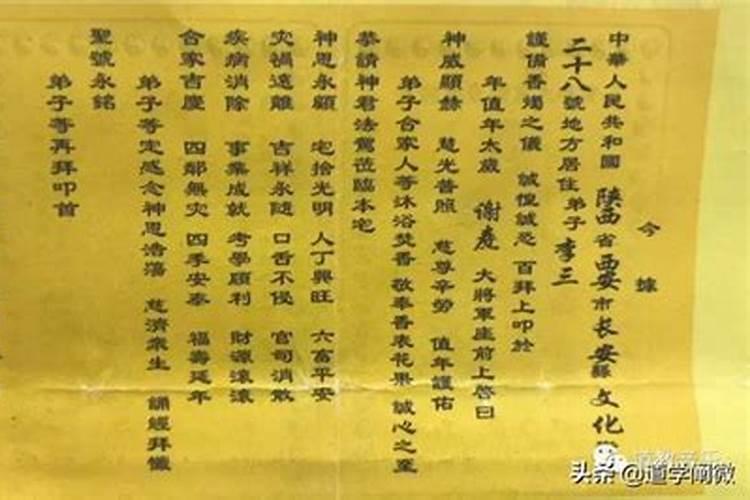 今據
中華人民共和國 陝西省西安市长安縣文化
二十八號地方居住弟子李三
謹備香燭之儀 誠惶誠恐 百拜上叩於
年值年太歲 謝慶 大將軍座前上啓曰
神威顯赫 慈光普照 慈尊辛勞 值年護佑
弟子合家人等沐浴焚香 敬奉香表花果 誠心之至
恭請神君法駕蒞臨本宅
神恩永顧 宅捨光明 人丁興旺 六富平安
災禍遠離 吉祥永隨 口舌不侵 官司消散
疾病消除 事業成就 考學順利 財源滾滾
合家吉慶 四鄰無災 四季安泰 福壽延年
弟子等定感念神恩浩蕩 慈濟衆生 誦經拜懺
聖號永銘
弟子等再拜叩首
头条 @道学阐微